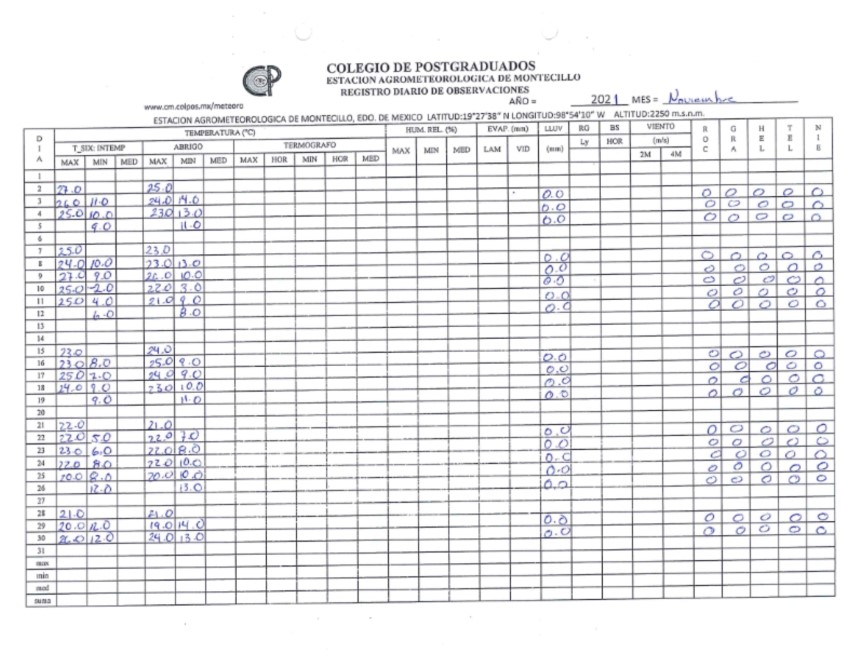 COLEGIO DE POSTGRADUADOS
ESTACION AGROMETEOROLOGICA DE MONTECILLO
REGISTRO DIARIO DE OBSERVACIONES
www.cm.colpos.mx/meteoro
AÑO = 2021 MES = Noviembre
ESTACION AGROMETEOROLOGICA DE MONTECILLO, EDO. DE MEXICO LATITUD:19°27'38" N LONGITUD:98°54'10" W ALTITUD:2250 m.s.n.m.
DIA TEMPERATURA (°C) HUM. REL. (%) EVAP. (mm) LLUV RG BS VIENTO ROC GRA HEL TEL NIE
T_SIX: INTEMP ABRIGO TERMOGRAFO (mm) Ly HOR (m/s)
MAX MIN MED MAX MIN MED MAX HOR MIN HOR MED MAX MIN MED LAM VID 2M 4M
1
2 27.0 25.0 0.0 0 0 0 0 0
3 26.0 11.0 24.0 14.0 0.0 0 0 0 0 0
4 25.0 10.0 23.0 13.0 0.0 0 0 0 0 0
5 9.0 11.0
6
7 25.0 23.0 0.0 0 0 0 0 0
8 24.0 10.0 23.0 13.0 0.0 0 0 0 0 0
9 27.0 9.0 10.0 0.0 0 0 0 0 0
10 25.0 -2.0 22.0 3.0 0.0 0 0 0 0 0
11 25.0 4.0 21.0 9.0 0.0 0 0 0 0 0
12 6.0 8.0
13
14
15 23.0 24.0 0.0 0 0 0 0 0
16 23.0 8.0 25.0 9.0 0.0 0 0 0 0 0
17 25.0 24.0 9.0 0.0 0 0 0 0 0
18 24.0 9.0 23.0 10.0 0.0 0 0 0 0 0
19 9.0 11.0
20
21 22.0 21.0 0.0 0 0 0 0 0
22 22.0 5.0 22.0 7.0 0.0 0 0 0 0 0
23 23.0 6.0 22.0 8.0 0.0 0 0 0 0 0
24 22.0 8.0 22.0 10.0 0.0 0 0 0 0 0
25 20.0 8.0 20.0 10.0 0.0 0 0 0 0 0
26 12.0 13.0
27
28 21.0 21.0 0.0 0 0 0 0 0
29 20.0 12.0 19.0 14.0 0.0 0 0 0 0 0
30 12.0 24.0 13.0
31
max
min
med
suma